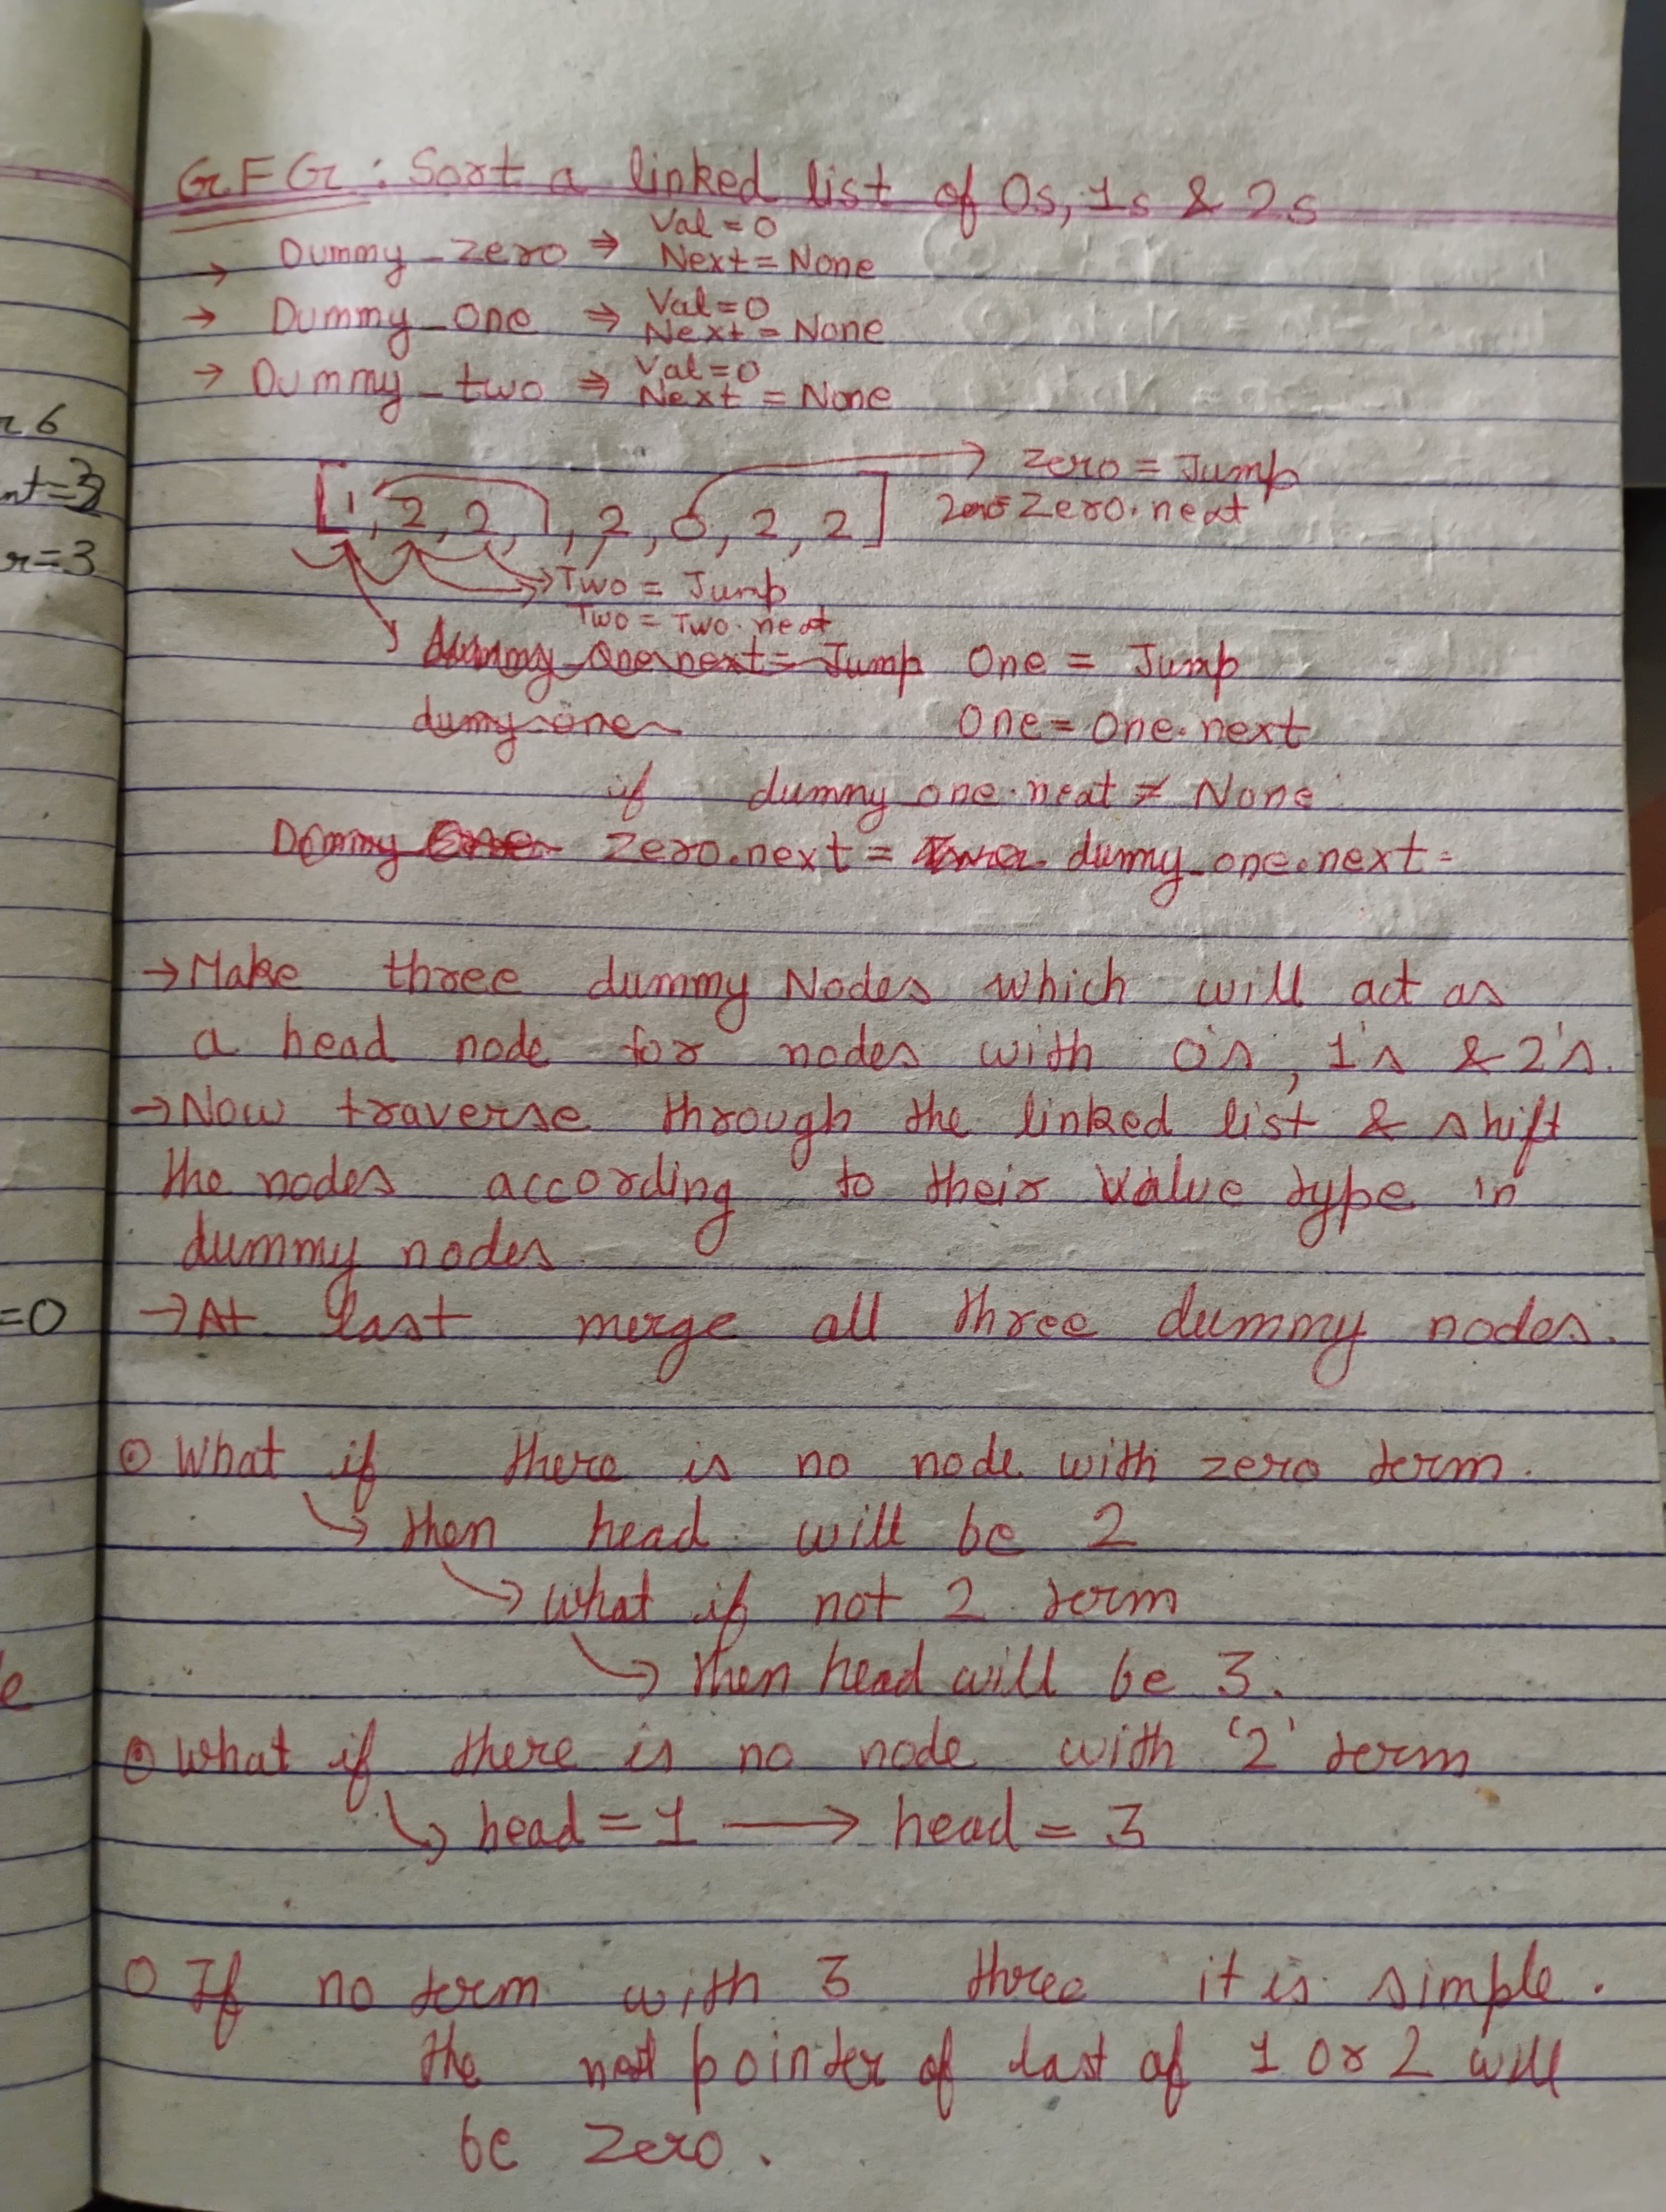 r 6
nt=3
r=3
=0
e
GFG : Sort a linked list of 0s, 1s & 2s
→ Dummy_zero ⇒ Val = 0
Next = None
→ Dummy_one ⇒ Val = 0
Next = None
→ Dummy_two ⇒ Val = 0
Next = None
[1, 2, 2, 1, 2, 0, 2, 2]
→ zero = Jump
Zero.next
→ Two = Jump
Two = Two.next
Dummy one next = Jump One = Jump
dumy one One = One.next
if dummy one.next ≠ None
Dummy One Zero.next = dummy_one.next =
→ Make three dummy Nodes which will act as
a head node for nodes with 0's, 1's & 2's.
→ Now traverse through the linked list & shift
the nodes according to their value type in
dummy nodes
→ At last merge all three dummy nodes.
What if there is no node with zero term.
↳ then head will be 2
↳ what if not 2 term
↳ then head will be 3.
What if there is no node with '2' term
↳ head = 1 → head = 3
If no term with 3 three it is simple.
the next pointer of last of 1 or 2 will
be zero.